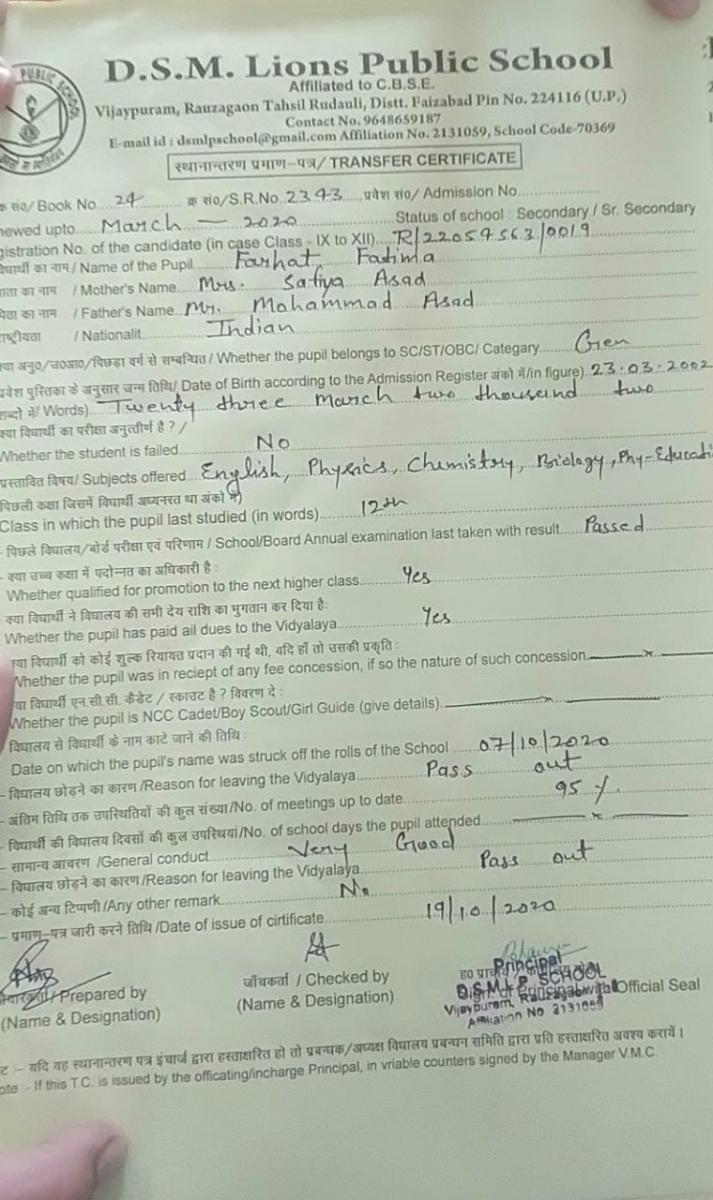 PUBLIC SCHOOL
D.S.M. Lions Public School
Affiliated to C.B.S.E.
Vijaypuram, Rauzagaon Tahsil Rudauli, Distt. Faizabad Pin No. 224116 (U.P.)
Contact No. 9648659187
E-mail id : dsmlpschool@gmail.com Affiliation No. 2131059, School Code-70369
स्थानान्तरण प्रमाण-पत्र/ TRANSFER CERTIFICATE
क सं०/ Book No. 24 क्र सं०/S.R.No. 2343 प्रवेश सं०/ Admission No.
newed upto March - 2020 Status of school : Secondary / Sr. Secondary
gistration No. of the candidate (in case Class - IX to XII). R/22054563/0019
विद्यार्थी का नाम / Name of the Pupil Farhat Fatima
माता का नाम / Mother's Name Mrs. Safiya Asad
पिता का नाम / Father's Name Mr. Mohammad Asad
राष्ट्रीयता / Nationalit Indian
क्या अनु०/ज०आ०/पिछड़ा वर्ग से सम्बन्धित / Whether the pupil belongs to SC/ST/OBC/ Categary Gen
प्रवेश पुस्तिका के अनुसार जन्म तिथि/ Date of Birth according to the Admission Register अंको में/in figure) 23.03.2002
शब्दो में/ Words) Twenty three March two thouseind two
क्या विद्यार्थी का परीक्षा अनुत्तीर्ण है ? /
Whether the student is failed No
प्रस्तावित विषय/ Subjects offered English, Physics, Chemistry, Biology, Phy-Educati
पिछली कक्षा जिसमें विद्यार्थी अध्यनरत था अंको में)
Class in which the pupil last studied (in words) 12th
- पिछले विद्यालय/बोर्ड परीक्षा एवं परिणाम / School/Board Annual examination last taken with result Passed
- क्या उच्च कक्षा में पदोन्नत का अधिकारी है :
Whether qualified for promotion to the next higher class Yes
- क्या विद्यार्थी ने विद्यालय की सभी देय राशि का भुगतान कर दिया है:
Whether the pupil has paid ail dues to the Vidyalaya Yes
क्या विद्यार्थी को कोई शुल्क रियायत प्रदान की गई थी, यदि हाँ तो उसकी प्रकृति :
Whether the pupil was in reciept of any fee concession, if so the nature of such concession x
क्या विद्यार्थी एन.सी.सी. कैडेट / स्काउट है ? विवरण दे :
Whether the pupil is NCC Cadet/Boy Scout/Girl Guide (give details). x
- विद्यालय से विद्यार्थी के नाम काटे जाने की तिथि :
Date on which the pupil's name was struck off the rolls of the School 07/10/2020
- विद्यालय छोड़ने का कारण /Reason for leaving the Vidyalaya Pass out
- अंतिम तिथि तक उपस्थितियों की कुल संख्या/No. of meetings up to date 95 %.
- विद्यार्थी की विद्यालय दिवसों की कुल उपस्थियां/No. of school days the pupil attended x
- सामान्य आचरण /General conduct Very Good
- विद्यालय छोड़ने का कारण /Reason for leaving the Vidyalaya Pass out
- कोई अन्य टिप्पणी /Any other remark No
- प्रमाण-पत्र जारी करने तिथि /Date of issue of cirtificate 19/10/2020
तैयारकर्ता / Prepared by
(Name & Designation)
जाँचकर्ता / Checked by
(Name & Designation)
Principal
D.S.M.L.P. SCHOOL
Sign of Principal with Official Seal
Vijaypuram, Rauzagaon
Affiliation No 2131059
ट :- यदि यह स्थानान्तरण पत्र इंचार्ज द्वारा हस्ताक्षरित हो तो प्रबन्धक/अध्यक्ष विद्यालय प्रबन्धन समिति द्वारा प्रति हस्ताक्षरित अवश्य करायें ।
ote :- If this T.C. is issued by the officating/incharge Principal, in vriable counters signed by the Manager V.M.C.